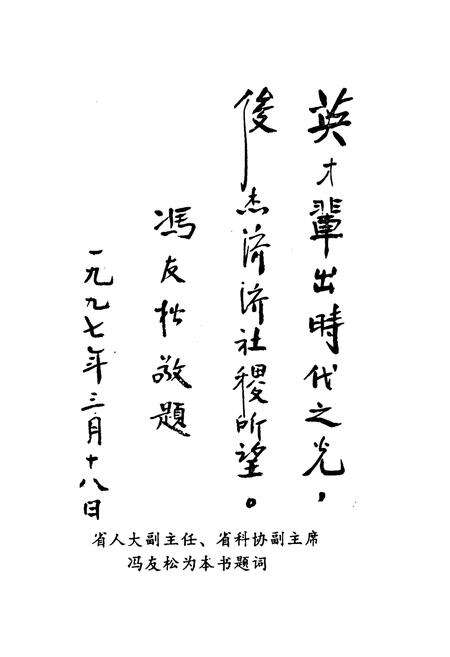 英才輩出時代之光，
俊杰济济社稷所望。
冯友松敬题
一九九七年三月十八日
省人大副主任、省科协副主席
冯友松为本书题词